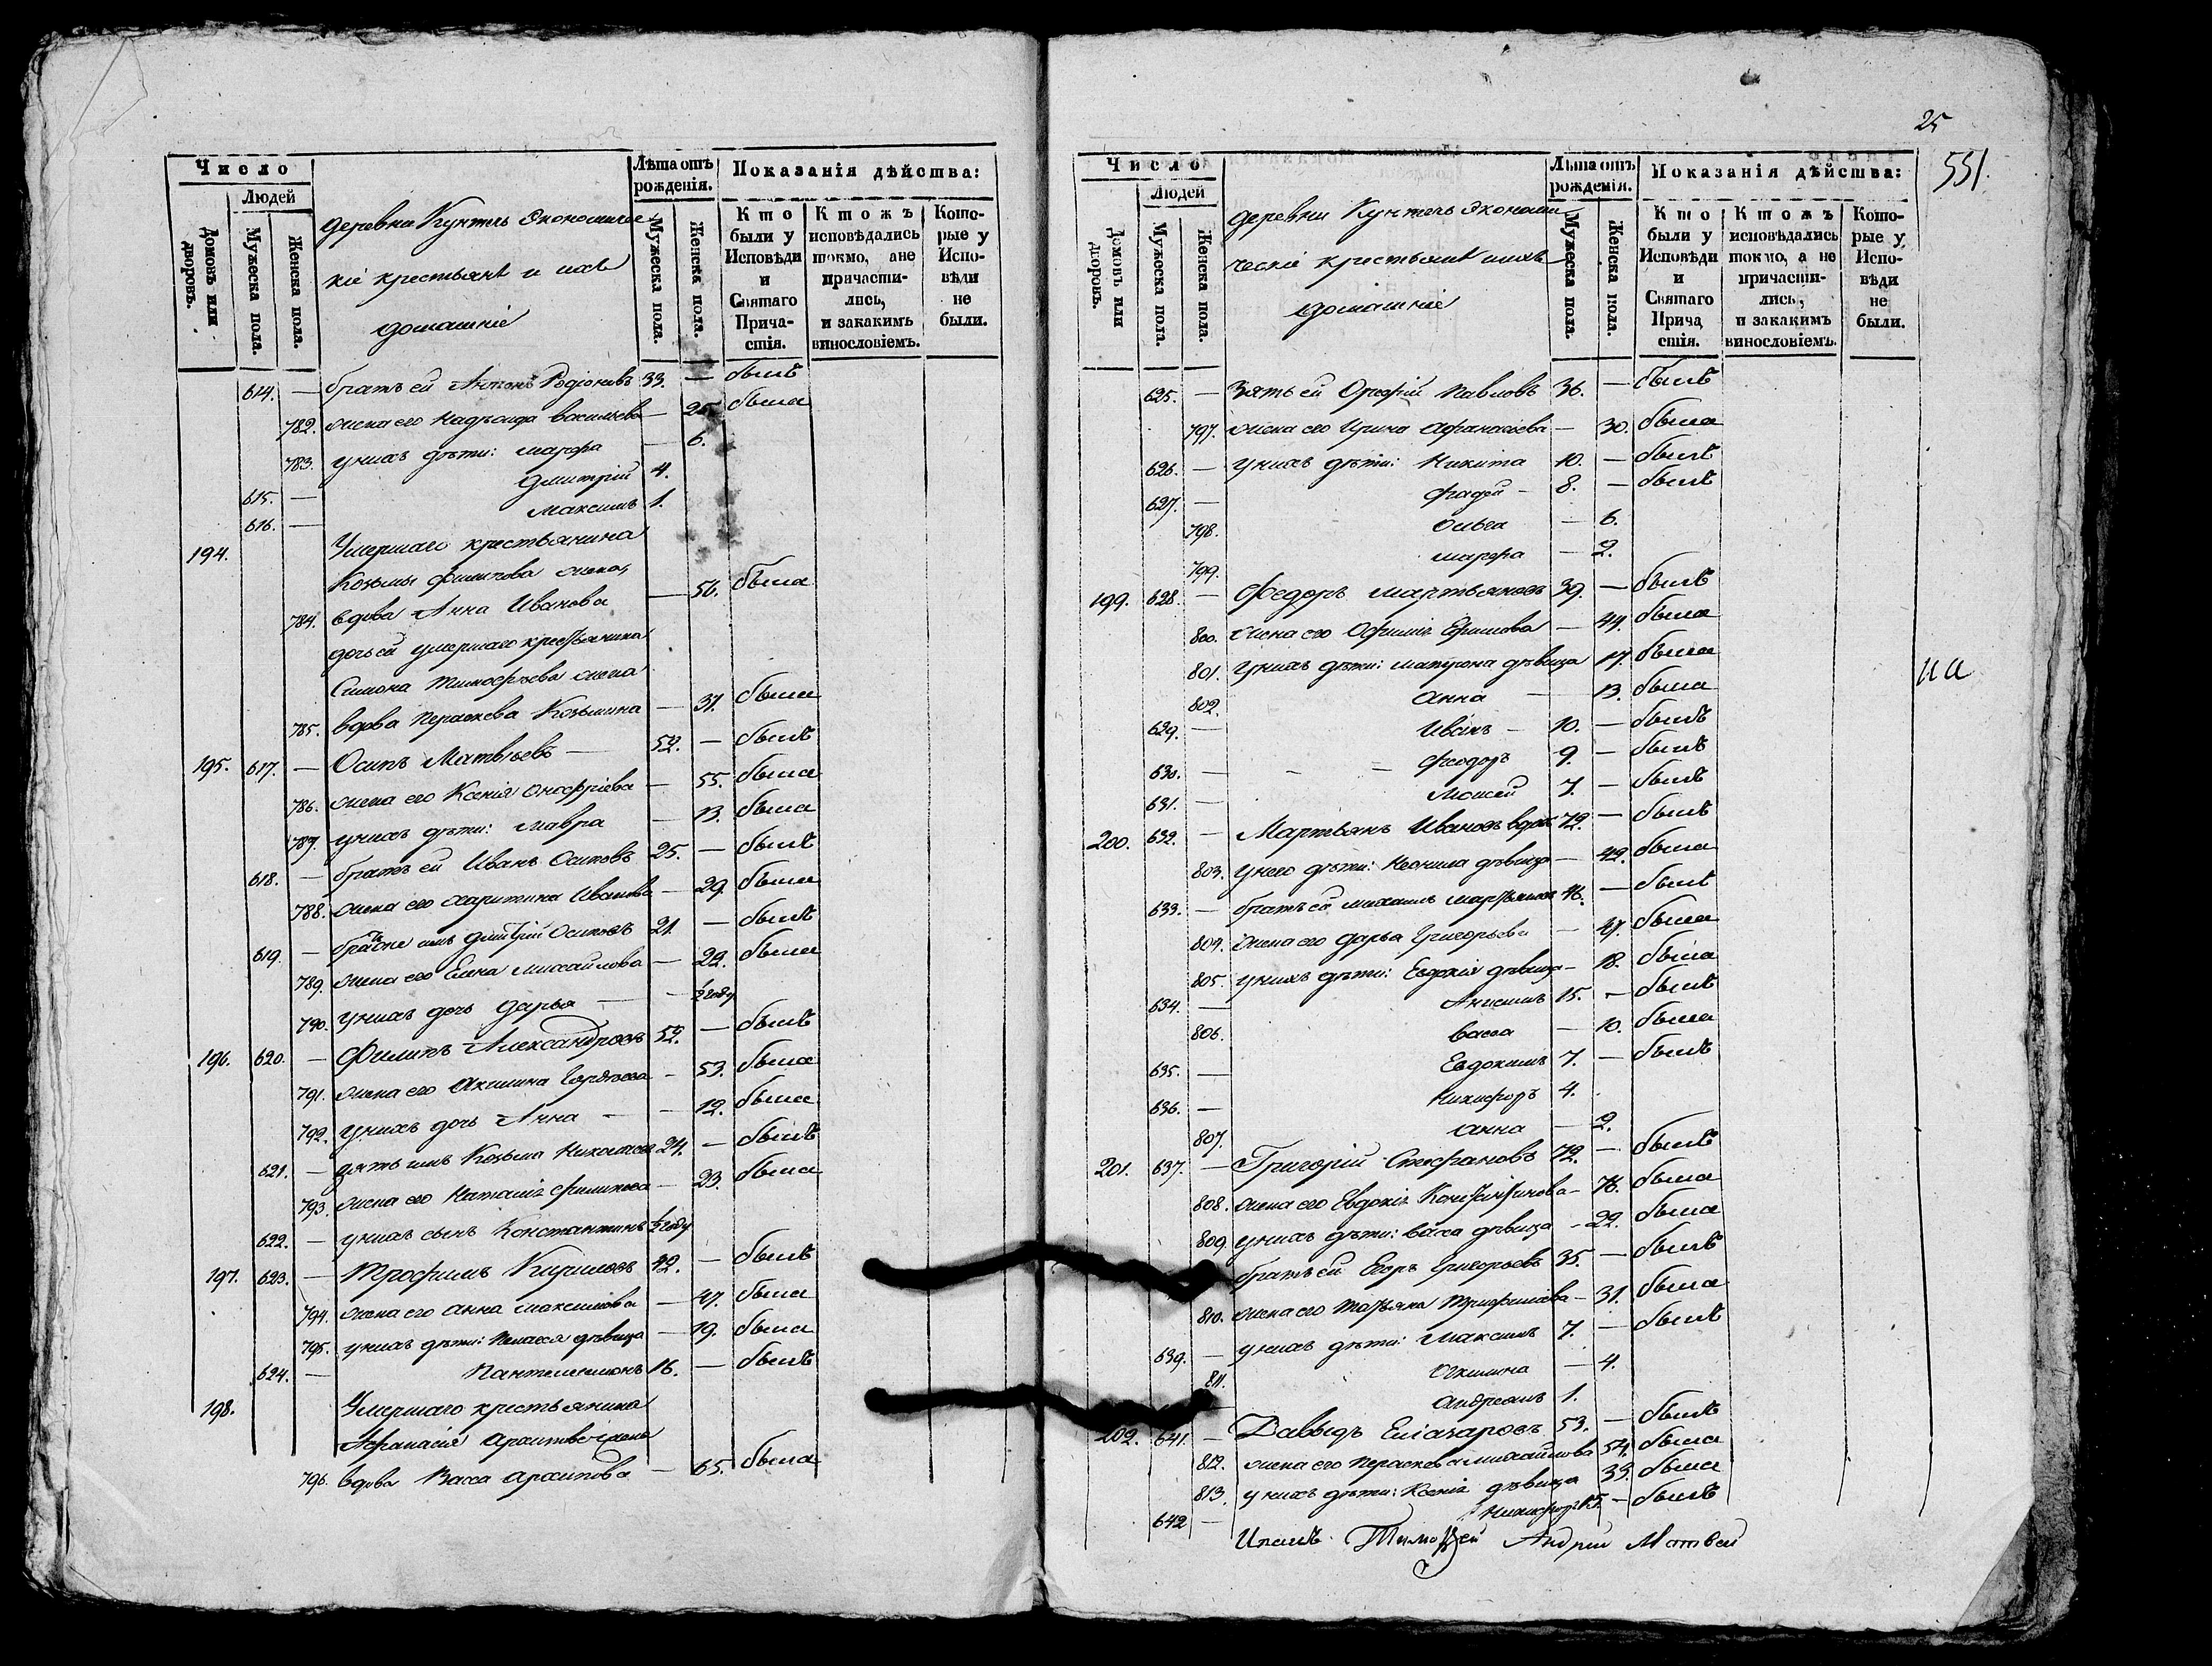 Число
Людей
Домовъ или дворовъ.
Мужеска пола.
Женска пола.
деревни Кунтль Экономичес
кіе крестьянѣ и ихъ
домашніе
Лѣта отъ рожденія.
Мужеска пола.
Женска пола.
Показанія дѣйства:
Кто были у Исповѣди и Святаго Причастія.
Ктожъ исповѣдались токмо, а не причастились, и закакимъ винословіемъ.
Которые у Исповѣди не были.
614. — братъ ей Антонъ Родіоновъ 33. — былъ
782. жена его Надѣжда Васильева — 25. была
783. у нихъ дѣти: марфа — 6.
615. — Дмитрій 4.
616. — Максимъ 1.
194. Умершаго крестьянина
Козьмы Филипова жена,
784. вдова Анна Иванова — 56. была
дочь ей умершаго крестьянина
Симона Тимофѣева жена
785. вдова Параскева Козьмина — 31. была
195. 617. — Осипъ Матвѣевъ — 52. — былъ
786. жена его Ксенія Онофріева — 55. была
787. у нихъ дѣти: мавра — 13. была
618. — братъ ей Иванъ Осиповъ 25. — былъ
788. жена его харитина Иванова — 29. была
619. — братъ же имъ Дмитрій Осиповъ 21. — былъ
789. жена его Елена михайлова — 22. была
790. у нихъ дочь Дарья — ½ году
196. 620. — Филипъ Александровъ 52. — былъ
791. жена его Акилина Гордѣева — 53. была
792. у нихъ дочь Анна — 12. была
621. — зять имъ Козьма Николаевъ 24. — былъ
793. жена его Наталія Филипова — 23. была
622. — у нихъ сынъ Константинъ ½ году
197. 623. — Трофимъ Кириловъ 42. — былъ
794. жена его анна максимова — 47. была
795. у нихъ дѣти: Пелагея дѣвица — 19. была
624. — Пантелеимонъ 16. — былъ
198. Умершаго крестьянина
Афанасія
796. вдова Васса архипова — 65. была
25
551.
Число
Людей
Домовъ или дворовъ.
Мужеска пола.
Женска пола.
деревни Кунтль Экономи
ческіе крестьянѣ ихъ
домашніе
Лѣта отъ рожденія.
Мужеска пола.
Женска пола.
Показанія дѣйства:
Кто были у Исповѣди и Святаго Прича стія.
Ктожъ исповѣдались токмо, а не причастились, и закакимъ винословіемъ.
Которые у Исповѣди не были.
625. — Зять ей Орефій Павловъ 36. — былъ
797. жена его Ирина Афанасьева — 30. была
626. — у нихъ дѣти: Никита 10. — былъ
627. — Фадей — 8. — былъ
798. Ольга — 6.
799. марфа — 2.
199. 628. — Федоръ мартьяновъ 39. — былъ
800. жена его Офимія Ефимова — 44. была
801. у нихъ дѣти: матрона дѣвица 17. была
802. Анна — 13. была
629. — Иванъ — 10. — былъ
630. — Феодоръ 9. — былъ
631. — Моисей 7. — былъ
200. 632. — Мартьянъ Ивановъ вдовъ 72. — былъ
803. у него дѣти: Неонила дѣвица — 42. была
633. — братъ ей михаилъ мартьяновъ 46. — былъ
804. жена его дарья Григорьева — 47. была
805. у нихъ дѣти: Евдокія дѣвица — 18. была
634. — Анисимъ 15. — былъ
806. васса — 10. была
635. — Евдокимъ 7. — былъ
636. — Никифоръ 4.
807. анна — 2.
201. 637. — Григорій Стефановъ 72. — былъ
808. жена его Евдокія Константинова — 76. была
809. у нихъ дѣти: васса дѣвица — 22. была
братъ ей Егоръ Григорьевъ 35. — былъ
810. жена его Татьяна Трифилова — 31. была
639. — у нихъ дѣти: Максимъ 7. — былъ
811. Акилина — 4.
Андреанъ 1.
202. 641. — Давыдъ Еліазаровъ 53. — былъ
812. жена его Параскева михайлова 54. была
813. у нихъ дѣти: Ксенія дѣвица 33. была
642 — Никифоръ 15. — былъ
Тимофей Андрей Матвеи